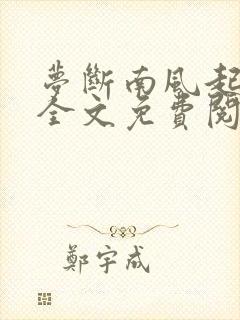 夢斷南風起
全文免費閱
鄭宇成